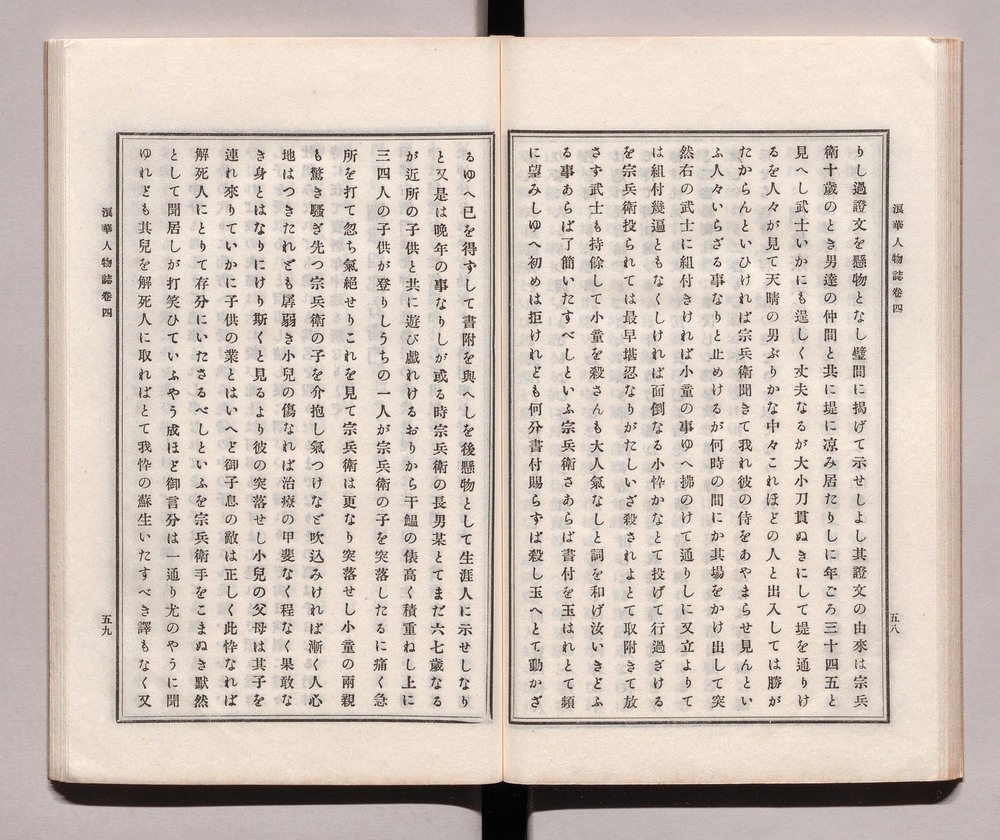 浪華人物誌卷四
五八
りし過證文を懸物となし璧間に揭げて示せしよし其證文の由來は宗兵
衞十歲のとき男達の仲間と共に堤に凉み居たりしに年ごろ三十四五と
見へし武士いかにも逞しく丈夫なるが大小刀貫ぬきにして堤を通りけ
るを人々が見て天晴の男ぶりかな中々これほどの人と出入しては勝が
たからんといひければ宗兵衞聞きて我れ彼の侍をあやまらせ見んとい
ふ人々いらざる事なりと止めけるが何時の間にか其場をかけ出して突
然右の武士に組付きければ小童の事ゆへ拂のけて通りしに又立よりて
は組付幾遍ともなくしければ面倒なる小忰かなとて投げて行過ぎける
を宗兵衞投られては最早堪忍なりがたしいざ殺されよとて取附きて放
さず武士も持餘して小童を殺さんも大人氣なしと詞を和げ汝いきどふ
る事あらば了簡いたすべしといふ宗兵衞さあらば書付を玉はれとて頻
に望みしゆへ初めは拒けれども何分書付賜らずば殺し玉へとて動かざ
るゆへ已を得ずして書附を與へしを後懸物として生涯人に示せしなり
と又是は晚年の事なりしが或る時宗兵衞の長男某とてまだ六七歲なる
が近所の子供と共に遊び戲れけるおりから干鰮の俵高く積重ねし上に
三四人の子供が登りしうちの一人が宗兵衞の子を突落したるに痛く急
所を打て忽ち氣絕せりこれを見て宗兵衞は更なり突落せし小童の兩親
も驚き騷ぎ先つ宗兵衞の子を介抱し氣つけなど吹込みければ漸く人心
地はつきたれども孱弱き小兒の傷なれば治療の甲斐なく程なく果敢な
き身とはなりにけり斯くと見るより彼の突落せし小兒の父母は其子を
連れ來りていかに子供の業とはいへど御子息の敵は正しく此忰なれば
解死人にとりて存分にいたさるべしといふを宗兵衞手をこまぬき默然
として聞居しが打笑ひていふやう成ほど御言分は一通り尤のやうに聞
ゆれども其兒を解死人に取ればとて我忰の蘇生いたすべき譯もなく又
浪華人物誌卷四
五九